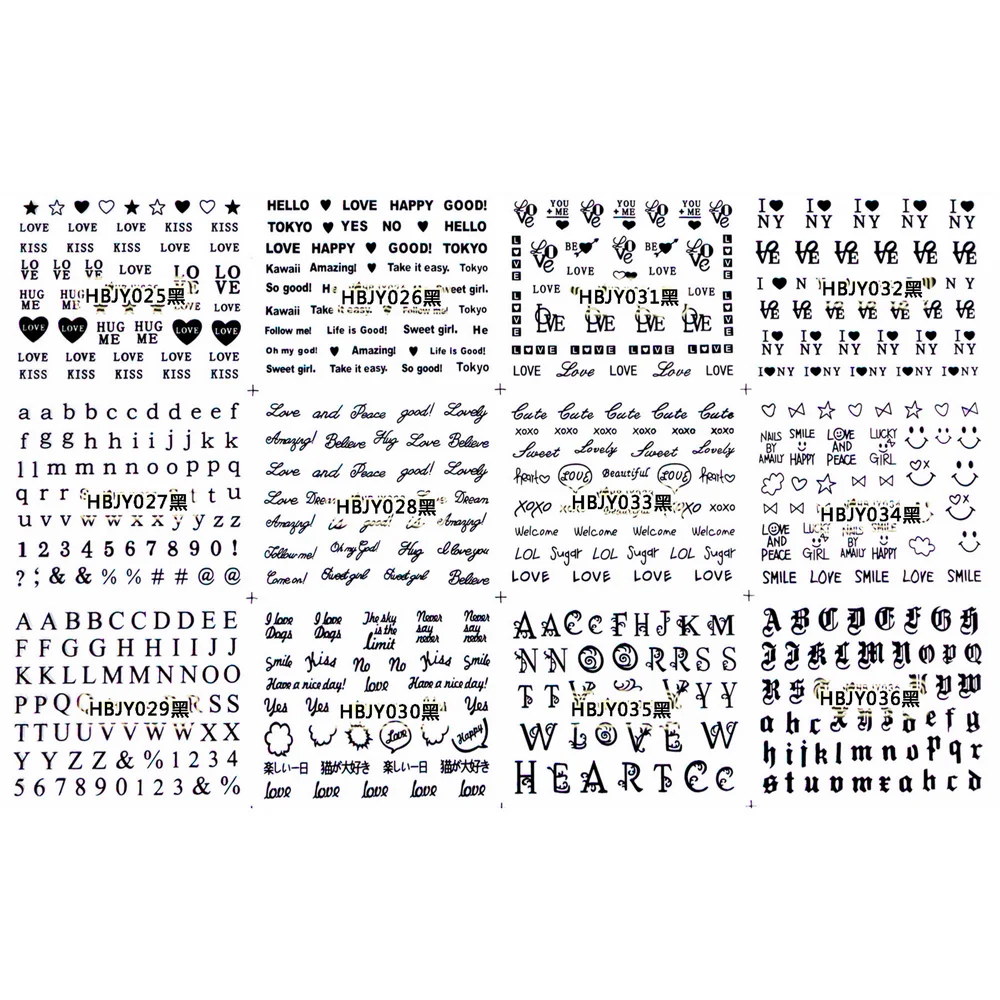 LOVE LOVE LOVE KISS KISS
KISS KISS KISS LOVE LOVE
LOVE LOVE LOVE LOVE LOVE LOVE
HUG ME HUG LOVE
HBJY025黑
LOVE LOVE HUG ME HUG ME LOVE LOVE
LOVE LOVE LOVE LOVE LOVE
KISS KISS KISS KISS KISS
HELLO LOVE HAPPY GOOD!
TOKYO YES NO HELLO
LOVE HAPPY GOOD! TOKYO
Kawaii Amazing! Take it easy. Tokyo
So good! HBJY026黑 Sweet girl.
Kawaii Take it easy. Follow me! Tokyo
Follow me! Life is Good! Sweet girl. He
Oh my god! Amazing! Life is Good!
Sweet girl. Take it easy. So good! Tokyo
LOVE YOU + ME LOVE YOU + ME LOVE YOU + ME LOVE
LOVE LOVE BE LOVE BE LOVE LOVE
LOVE LOVE
LOVE HBJY031黑 LOVE
LOVE LOVE LOVE LOVE LOVE LOVE
LOVE LOVE LOVE LOVE
LOVE Love LOVE Love LOVE
I NY I NY I NY I NY I NY
LOVE LOVE LOVE LOVE LOVE LOVE
I N HBJY032黑 NY
LOVE LOVE LOVE LOVE LOVE LOVE LOVE
I NY I NY I NY I NY I NY I NY
I NY I NY I NY I NY I NY
a a b b c c d d e e f
f g g h h i i j j k k
l l m m n n o o p p q
q r r s HBJY027黑 t t u
u v v w w x x y y z z
1 2 3 4 5 6 7 8 9 0 !
? ; & & % % # # @ @
Love and Peace good! Lovely
Amazing! Believe Hug Love Believe
Love and Peace good! Lovely
Love HBJY028黑 Dream
Amazing! is good! is Amazing!
Follow me! Oh my God! Hug I love you
Come on! Sweet girl Sweet girl Believe
Cute Cute Cute Cute Cute
XOXO XOXO XOXO XOXO XOXO
Sweet Lovely Sweet Lovely
Heart LOVE Beautiful LOVE Heart
XOXO HBJY033黑 XOXO
Welcome Welcome Welcome Welcome
LOL Sugar LOL Sugar LOL Sugar
LOVE LOVE LOVE LOVE
NAILS BY AMAILY SMILE HAPPY LOVE AND PEACE LUCKY GIRL
HBJY034黑
LOVE AND PEACE LUCKY GIRL NAILS BY AMAILY SMILE HAPPY
SMILE LOVE SMILE LOVE SMILE
A A B B C C D D E E
F F G G H H I I J J
K K L L M M N N O O
P P Q HBJY029黑 R S S
T T U U V V W W X X
Y Y Z Z & % 1 2 3 4
5 6 7 8 9 0 1 2 3 & %
I love Dogs I love Dogs The sky is the limit Never say never Never say never
Smile Kiss No No Kiss Smile
Have a nice day! love Have a nice day!
Yes Yes HBJY030黑 Yes
Love Happy
楽しい一日 猫が大好き 楽しい一日 猫が大好き
love love love love love
A A C C F H J K M
N N O O R R S S
T T V HBJY035黑 Y Y
W L O V E W
H E A R T C C
A B C D E F G H
I J K L M N O P Q
R S HBJY036黑 X Y W
a b c d e f g
h i j k l m n o p q r
s t u v w x a b c d